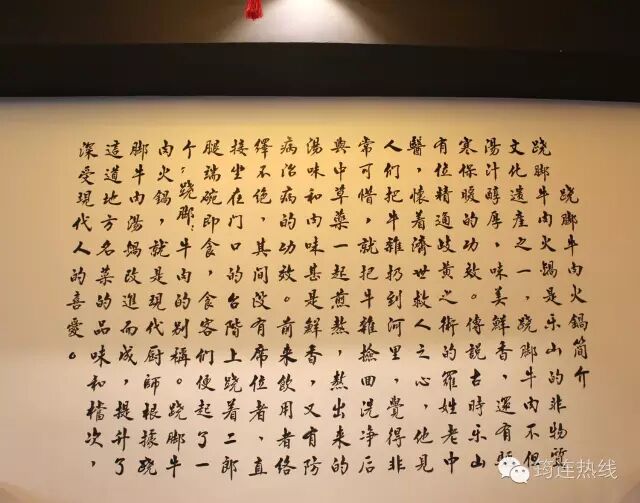 跷脚牛肉火鍋簡介
跷脚牛肉火鍋是乐山的非物質
文化遺產之一，跷脚牛肉不但
湯汁醇厚，味美鮮香，還有驅
寒保暖的功效。傳說古時乐山
有位精通歧黄之術的羅姓老中
醫，懷着濟世救人之心，他見
人们把牛雜扔到河里，覺得非
常可惜，就把牛雜撿回洗净后
與中草藥一起煎熬，熬出来的
湯味和肉味甚是鮮香，又有防
病治病的功效。前来飲用者络
绎不绝，其间没有席位者，直
接坐在門口的台階上跷着二郎
腿端碗即食，食客们便起了一
个：跷脚：牛肉的别稱。跷脚牛
肉火鍋，就是現代厨師根據跷
脚牛肉湯鍋改進而成，提升了
這道地方名菜的品味和檔次，
深受現代人的喜愛。
筠连热线